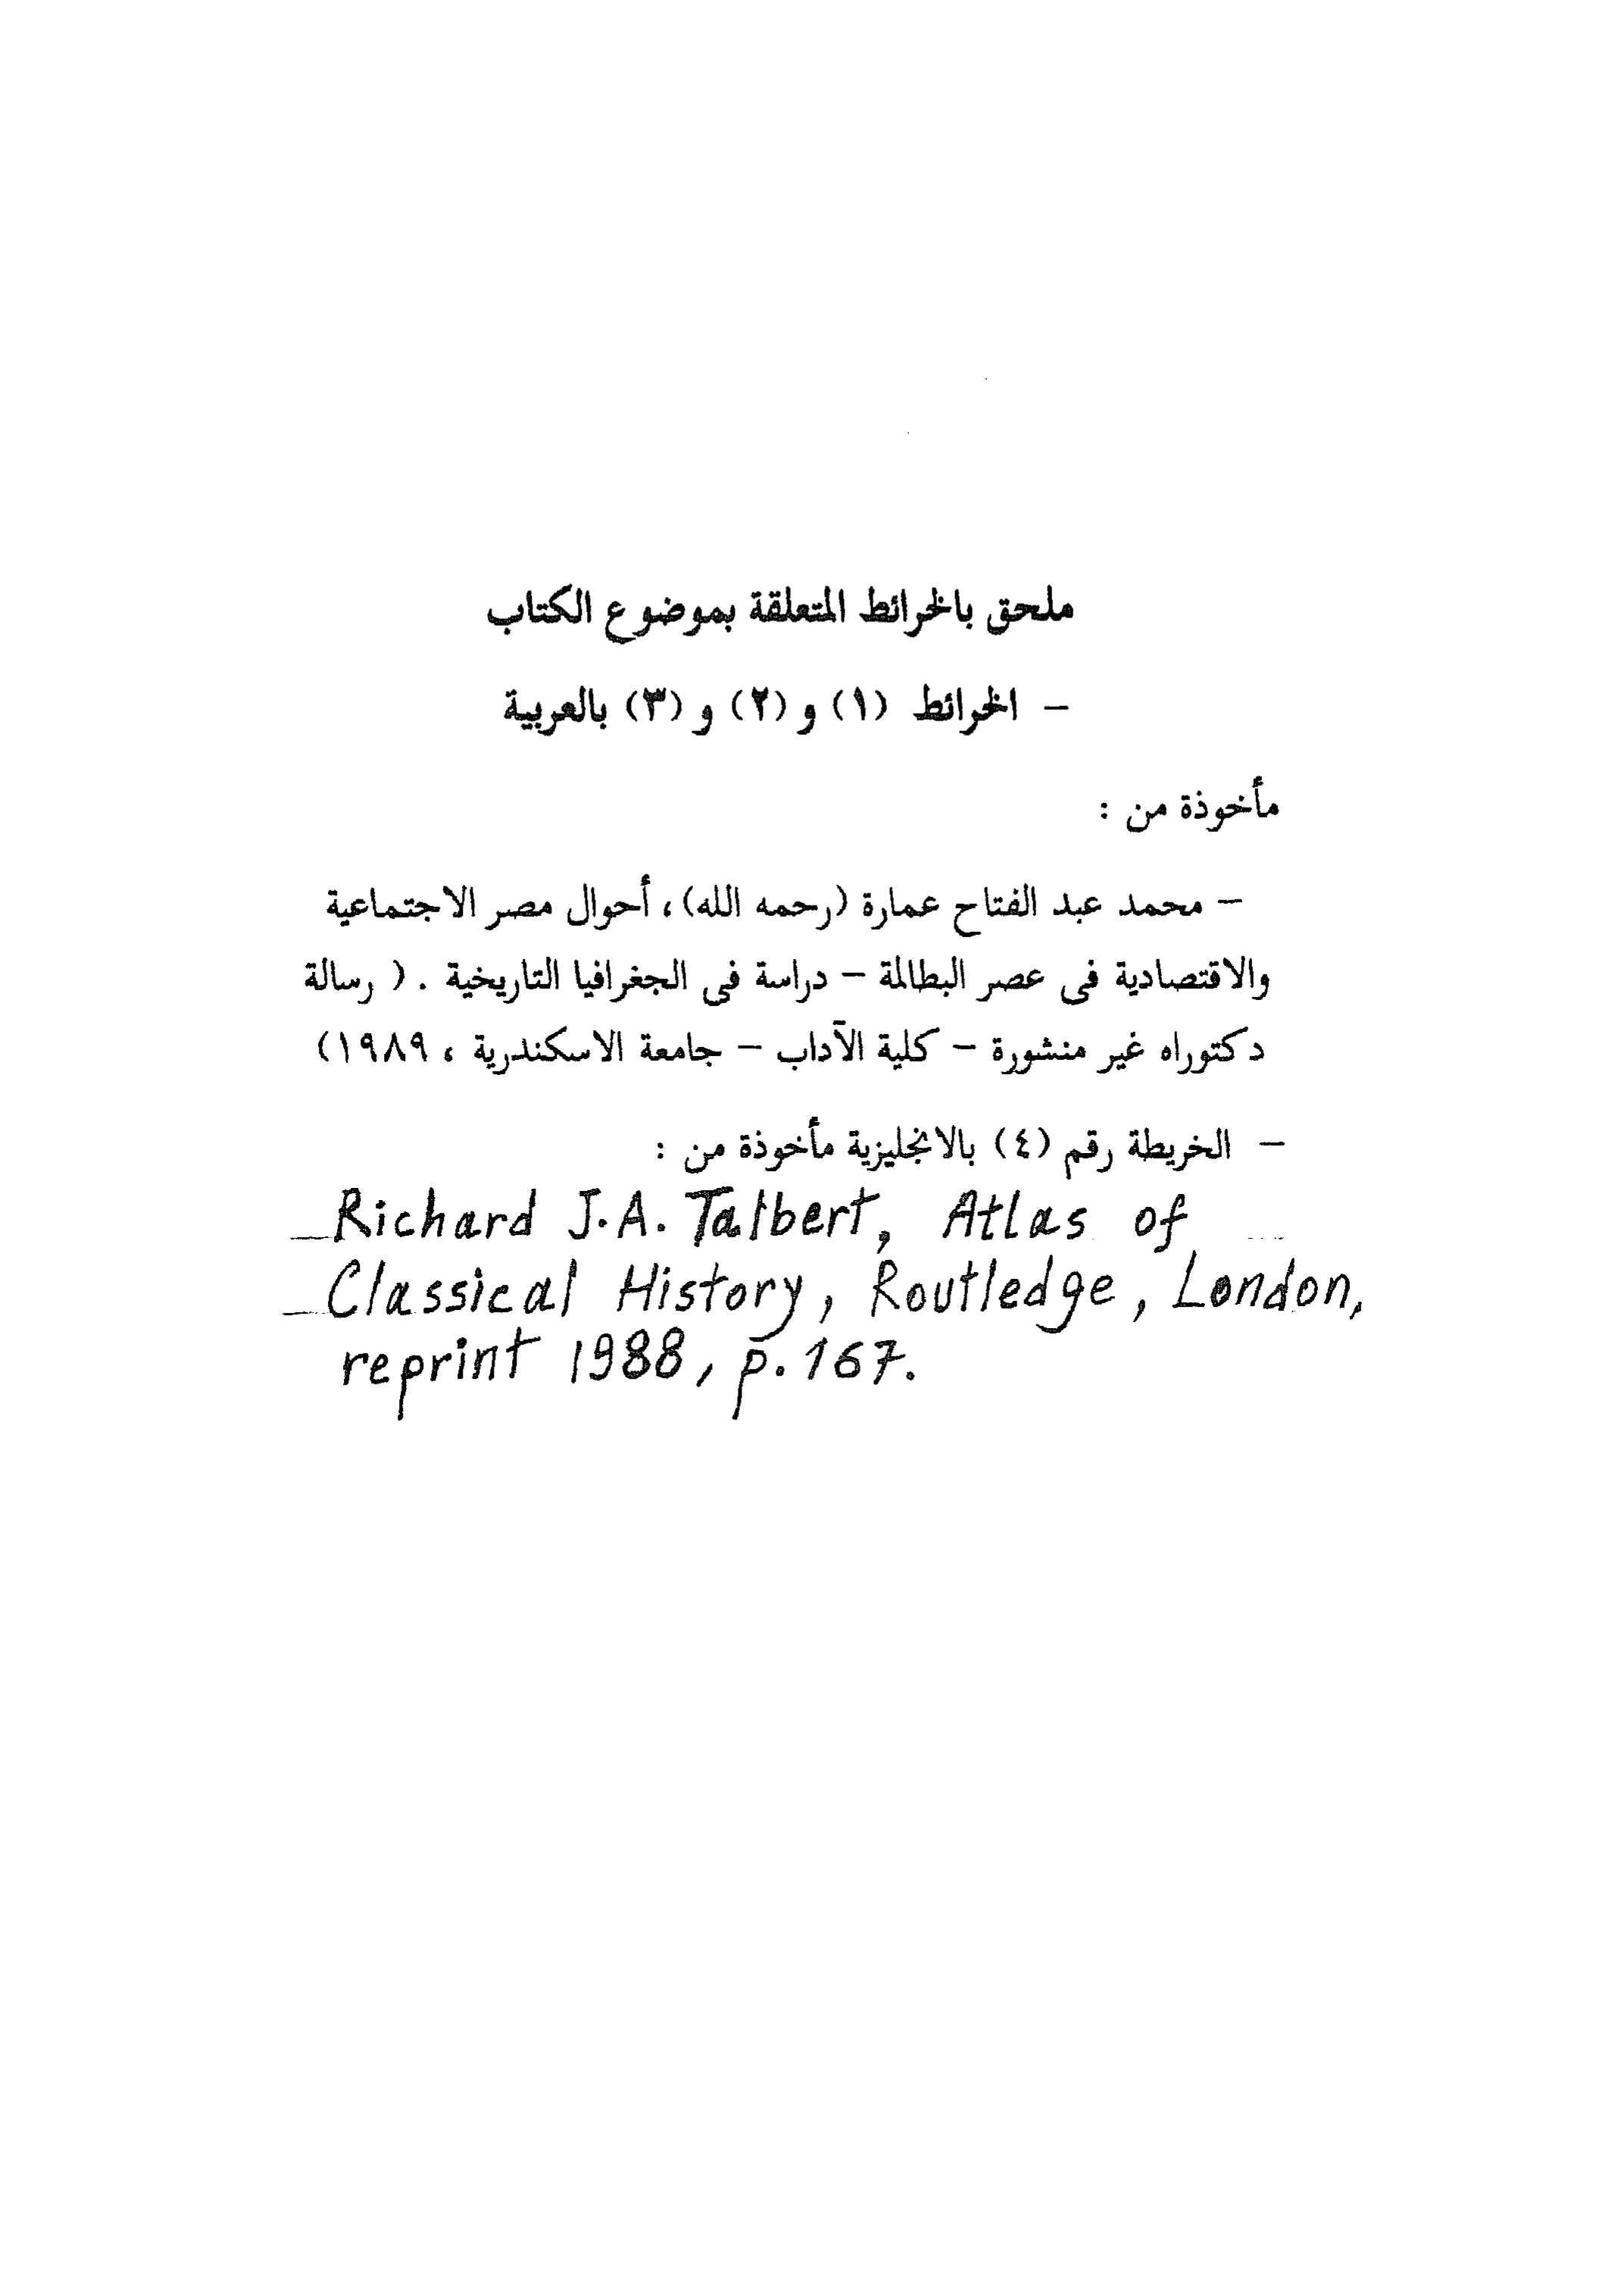 ملحق بالخرائط المتعلقة بموضوع الكتاب
– الخرائط (١) و (٢) و (٣) بالعربية
مأخوذة من :
– محمد عبد الفتاح عمارة (رحمه الله)، أحوال مصر الاجتماعية
والاقتصادية فى عصر البطالمة – دراسة فى الجغرافيا التاريخية . ( رسالة
دكتوراه غير منشورة – كلية الآداب – جامعة الاسكندرية ، ١٩٨٩)
– الخريطة رقم (٤) بالانجليزية مأخوذة من :
Richard J.A. Talbert, Atlas of
Classical History, Routledge, London,
reprint 1988, p. 167.